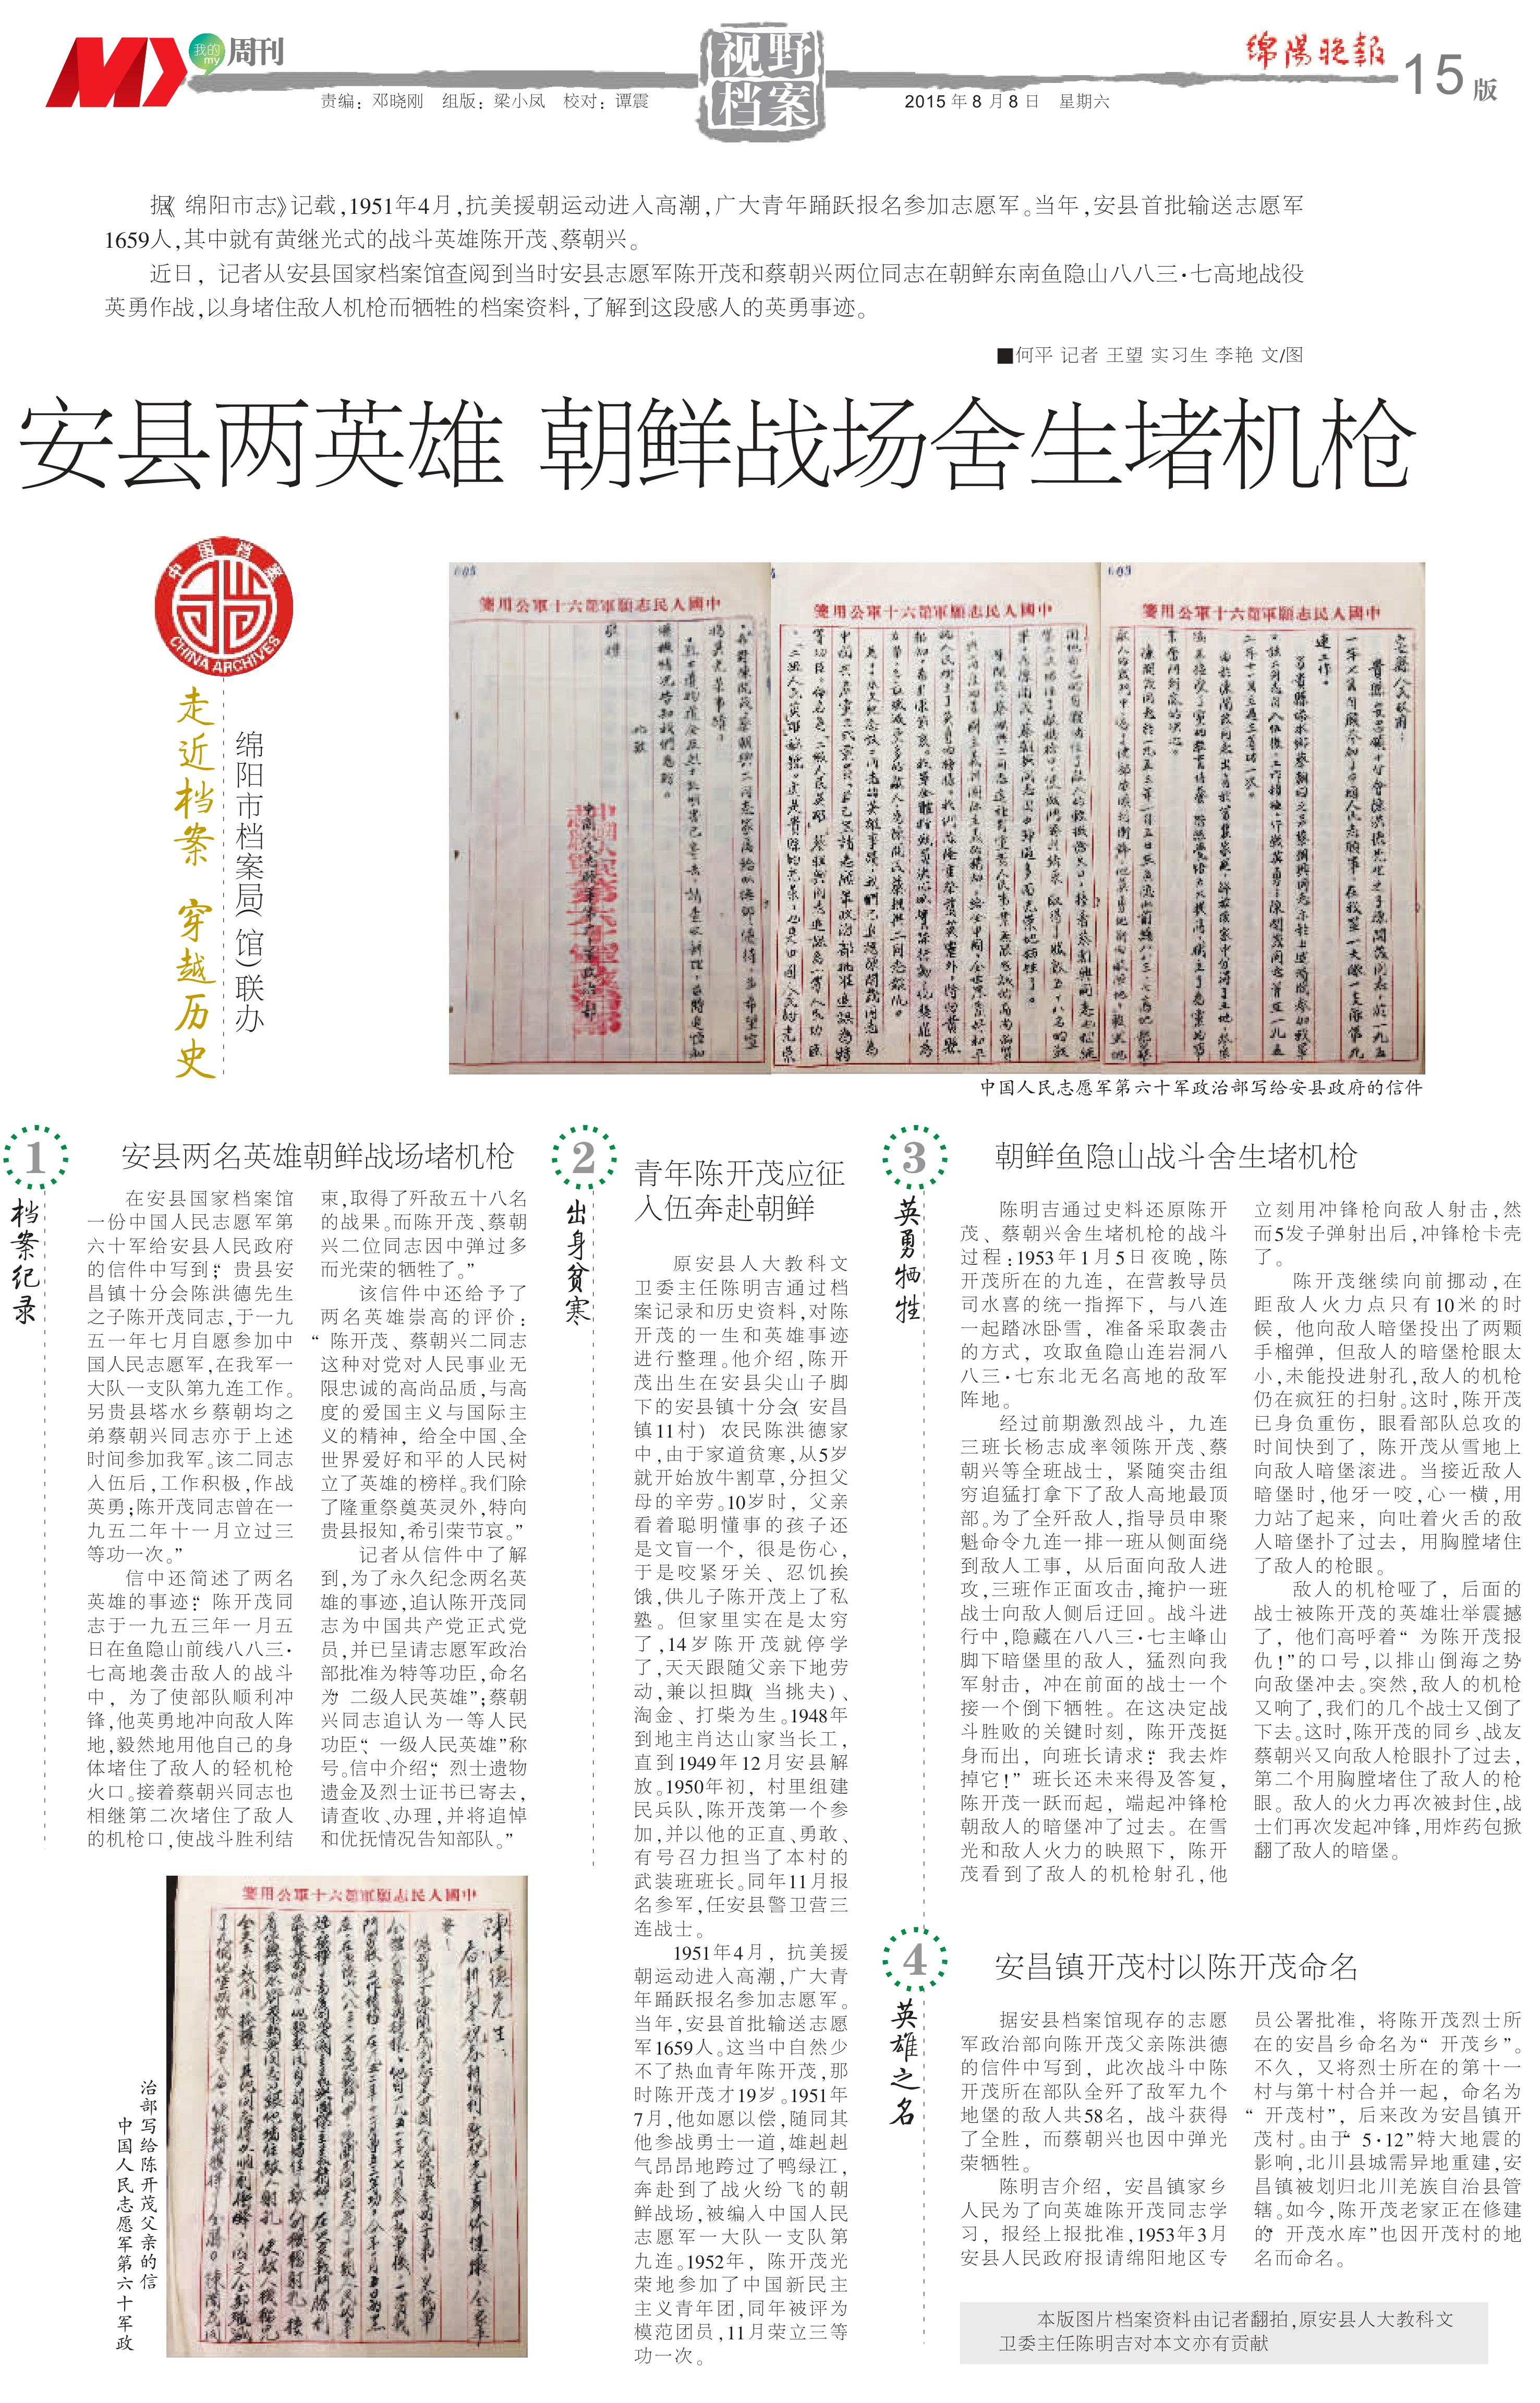 我的
my
周刊
视野
档案
绵阳晚报
15版
责编：邓晓刚 组版：梁小凤 校对：谭震
2015年8月8日 星期六
据《绵阳市志》记载,1951年4月,抗美援朝运动进入高潮,广大青年踊跃报名参加志愿军。当年,安县首批输送志愿军
1659人,其中就有黄继光式的战斗英雄陈开茂、蔡朝兴。
近日，记者从安县国家档案馆查阅到当时安县志愿军陈开茂和蔡朝兴两位同志在朝鲜东南鱼隐山八八三·七高地战役
英勇作战,以身堵住敌人机枪而牺牲的档案资料,了解到这段感人的英勇事迹。
■何平 记者 王望 实习生 李艳 文/图
安县两英雄 朝鲜战场舍生堵机枪
中国档案
CHINA ARCHIVES
走近档案 穿越历史
绵阳市档案局(馆)联办
中國人民志願軍第六十軍公用箋
中國人民志願軍第六十軍公用箋
中國人民志願軍第六十軍公用箋
中国人民志愿军第六十军政治部写给安县政府的信件
1
档案纪录
安县两名英雄朝鲜战场堵机枪
在安县国家档案馆
一份中国人民志愿军第
六十军给安县人民政府
的信件中写到：“贵县安
昌镇十分会陈洪德先生
之子陈开茂同志,于一九
五一年七月自愿参加中
国人民志愿军,在我军一
大队一支队第九连工作。
另贵县塔水乡蔡朝均之
弟蔡朝兴同志亦于上述
时间参加我军。该二同志
入伍后,工作积极,作战
英勇;陈开茂同志曾在一
九五二年十一月立过三
等功一次。”
信中还简述了两名
英雄的事迹：“陈开茂同
志于一九五三年一月五
日在鱼隐山前线八八三·
七高地袭击敌人的战斗
中，为了使部队顺利冲
锋,他英勇地冲向敌人阵
地,毅然地用他自己的身
体堵住了敌人的轻机枪
火口。接着蔡朝兴同志也
相继第二次堵住了敌人
的机枪口,使战斗胜利结
束,取得了歼敌五十八名
的战果。而陈开茂、蔡朝
兴二位同志因中弹过多
而光荣的牺牲了。”
该信件中还给予了
两名英雄崇高的评价：
“陈开茂、蔡朝兴二同志
这种对党对人民事业无
限忠诚的高尚品质,与高
度的爱国主义与国际主
义的精神，给全中国、全
世界爱好和平的人民树
立了英雄的榜样。我们除
了隆重祭奠英灵外,特向
贵县报知,希引荣节哀。”
记者从信件中了解
到,为了永久纪念两名英
雄的事迹,追认陈开茂同
志为中国共产党正式党
员,并已呈请志愿军政治
部批准为特等功臣,命名
为“二级人民英雄”;蔡朝
兴同志追认为一等人民
功臣、“一级人民英雄”称
号。信中介绍：“烈士遗物
遗金及烈士证书已寄去,
请查收、办理,并将追悼
和优抚情况告知部队。”
中國人民志願軍第六十軍公用箋
中国人民志愿军第六十军政
治部写给陈开茂父亲的信
2
出身贫寒
青年陈开茂应征
入伍奔赴朝鲜
原安县人大教科文
卫委主任陈明吉通过档
案记录和历史资料,对陈
开茂的一生和英雄事迹
进行整理。他介绍,陈开
茂出生在安县尖山子脚
下的安县镇十分会(安昌
镇11村）农民陈洪德家
中,由于家道贫寒,从5岁
就开始放牛割草,分担父
母的辛劳。10岁时，父亲
看着聪明懂事的孩子还
是文盲一个，很是伤心,
于是咬紧牙关、忍饥挨
饿,供儿子陈开茂上了私
塾。但家里实在是太穷
了,14岁陈开茂就停学
了,天天跟随父亲下地劳
动,兼以担脚(当挑夫)、
淘金、打柴为生。1948年
到地主肖达山家当长工,
直到1949年12月安县解
放。1950年初，村里组建
民兵队,陈开茂第一个参
加,并以他的正直、勇敢、
有号召力担当了本村的
武装班班长。同年11月报
名参军,任安县警卫营三
连战士。
1951年4月，抗美援
朝运动进入高潮,广大青
年踊跃报名参加志愿军。
当年,安县首批输送志愿
军1659人。这当中自然少
不了热血青年陈开茂,那
时陈开茂才19岁。1951年
7月,他如愿以偿,随同其
他参战勇士一道,雄赳赳
气昂昂地跨过了鸭绿江,
奔赴到了战火纷飞的朝
鲜战场,被编入中国人民
志愿军一大队一支队第
九连。1952年，陈开茂光
荣地参加了中国新民主
主义青年团,同年被评为
模范团员,11月荣立三等
功一次。
3
英勇牺牲
朝鲜鱼隐山战斗舍生堵机枪
陈明吉通过史料还原陈开
茂、蔡朝兴舍生堵机枪的战斗
过程:1953年1月5日夜晚,陈
开茂所在的九连，在营教导员
司水喜的统一指挥下，与八连
一起踏冰卧雪，准备采取袭击
的方式，攻取鱼隐山连岩洞八
八三·七东北无名高地的敌军
阵地。
经过前期激烈战斗，九连
三班长杨志成率领陈开茂、蔡
朝兴等全班战士，紧随突击组
穷追猛打拿下了敌人高地最顶
部。为了全歼敌人,指导员申聚
魁命令九连一排一班从侧面绕
到敌人工事，从后面向敌人进
攻,三班作正面攻击,掩护一班
战士向敌人侧后迂回。战斗进
行中,隐藏在八八三·七主峰山
脚下暗堡里的敌人，猛烈向我
军射击，冲在前面的战士一个
接一个倒下牺牲。在这决定战
斗胜败的关键时刻，陈开茂挺
身而出，向班长请求：“我去炸
掉它!”班长还未来得及答复,
陈开茂一跃而起，端起冲锋枪
朝敌人的暗堡冲了过去。在雪
光和敌人火力的映照下，陈开
茂看到了敌人的机枪射孔,他
立刻用冲锋枪向敌人射击,然
而5发子弹射出后,冲锋枪卡壳
了。
陈开茂继续向前挪动,在
距敌人火力点只有10米的时
候，他向敌人暗堡投出了两颗
手榴弹，但敌人的暗堡枪眼太
小,未能投进射孔,敌人的机枪
仍在疯狂的扫射。这时,陈开茂
已身负重伤，眼看部队总攻的
时间快到了，陈开茂从雪地上
向敌人暗堡滚进。当接近敌人
暗堡时,他牙一咬,心一横,用
力站了起来，向吐着火舌的敌
人暗堡扑了过去，用胸膛堵住
了敌人的枪眼。
敌人的机枪哑了，后面的
战士被陈开茂的英雄壮举震撼
了，他们高呼着“为陈开茂报
仇!”的口号,以排山倒海之势
向敌堡冲去。突然,敌人的机枪
又响了,我们的几个战士又倒了
下去。这时,陈开茂的同乡、战友
蔡朝兴又向敌人枪眼扑了过去,
第二个用胸膛堵住了敌人的枪
眼。敌人的火力再次被封住,战
士们再次发起冲锋,用炸药包掀
翻了敌人的暗堡。
4
英雄之名
安昌镇开茂村以陈开茂命名
据安县档案馆现存的志愿
军政治部向陈开茂父亲陈洪德
的信件中写到，此次战斗中陈
开茂所在部队全歼了敌军九个
地堡的敌人共58名，战斗获得
了全胜，而蔡朝兴也因中弹光
荣牺牲。
陈明吉介绍，安昌镇家乡
人民为了向英雄陈开茂同志学
习，报经上报批准,1953年3月
安县人民政府报请绵阳地区专
员公署批准，将陈开茂烈士所
在的安昌乡命名为“开茂乡”。
不久，又将烈士所在的第十一
村与第十村合并一起，命名为
“开茂村”，后来改为安昌镇开
茂村。由于“5·12”特大地震的
影响,北川县城需异地重建,安
昌镇被划归北川羌族自治县管
辖。如今,陈开茂老家正在修建
的“开茂水库”也因开茂村的地
名而命名。
本版图片档案资料由记者翻拍,原安县人大教科文
卫委主任陈明吉对本文亦有贡献